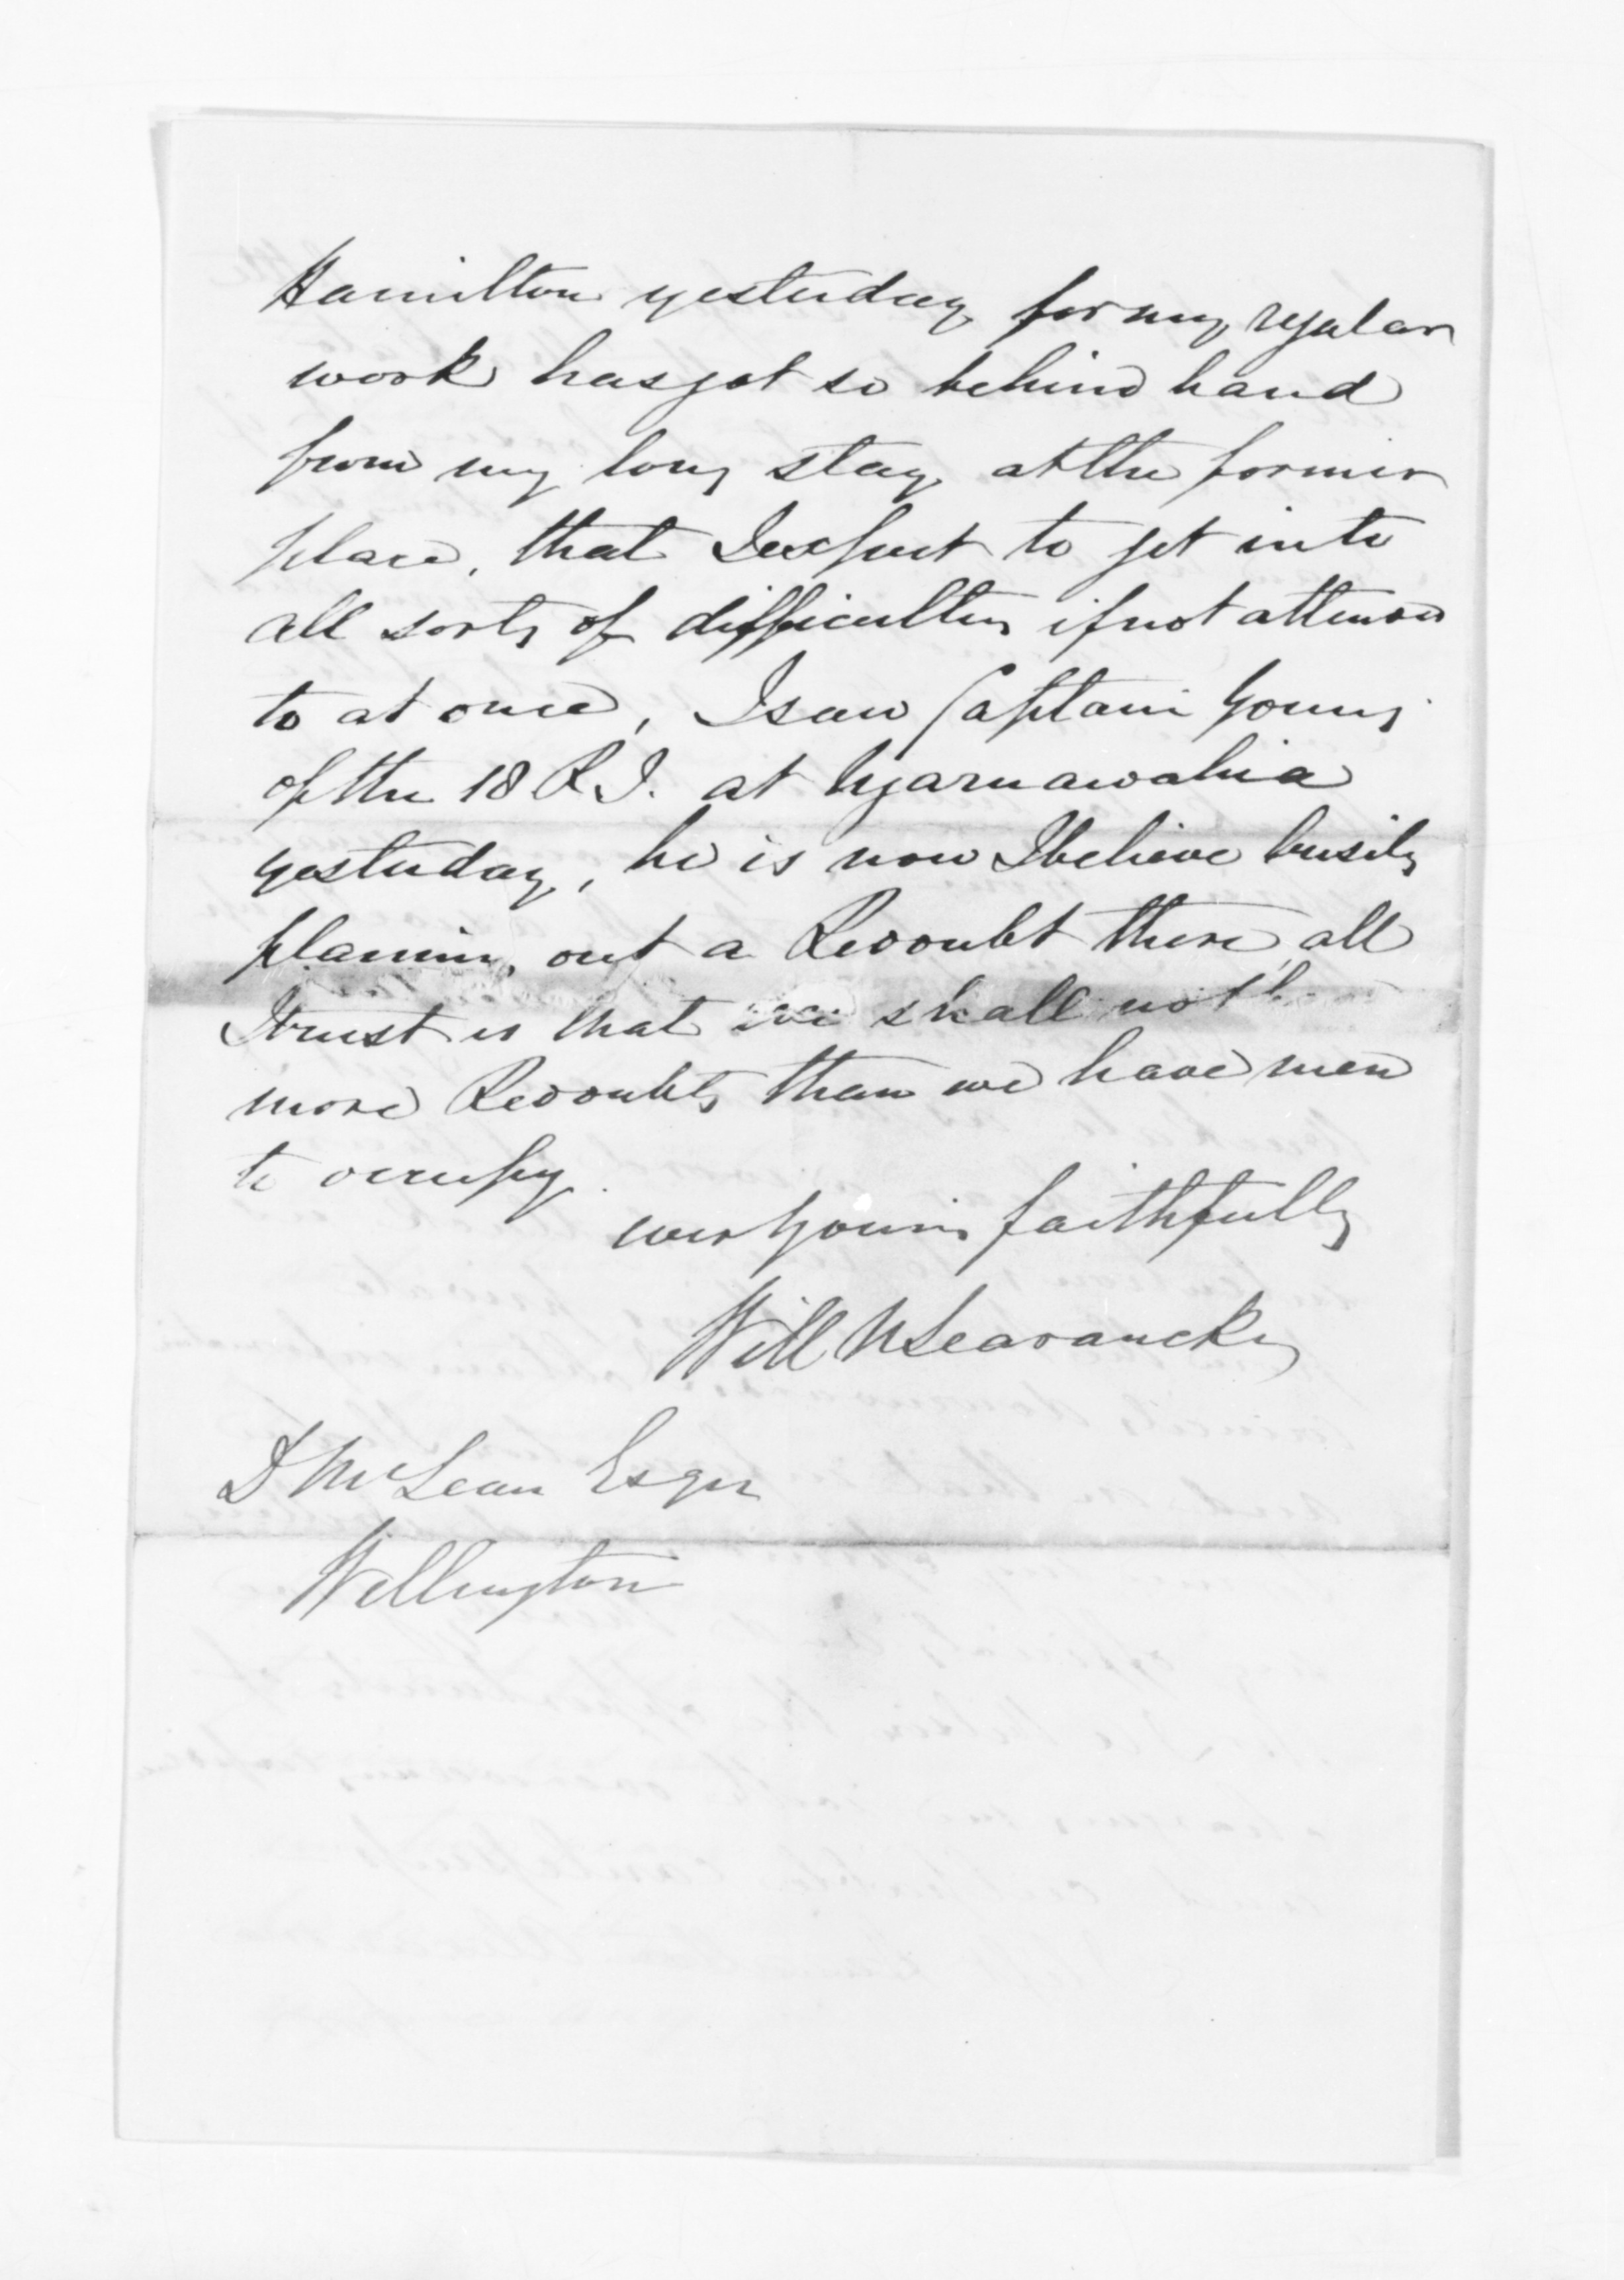 Hamilton yesterday, for my regular
work has got so behind hand
from my long stay at the former
place, that I expect to get into
all sorts of difficulties if not attended
to at once, I saw Captain Young
of the 18 R.I. at Ngaruawahia
yesterday, he is now I believe busily
planning out a Redoubt there, all
I trust is that we shall not
more Redoubts than we have men
to occupy.
ever yours faithfully
Will N Searancke
D McLean Esqr
Wellington